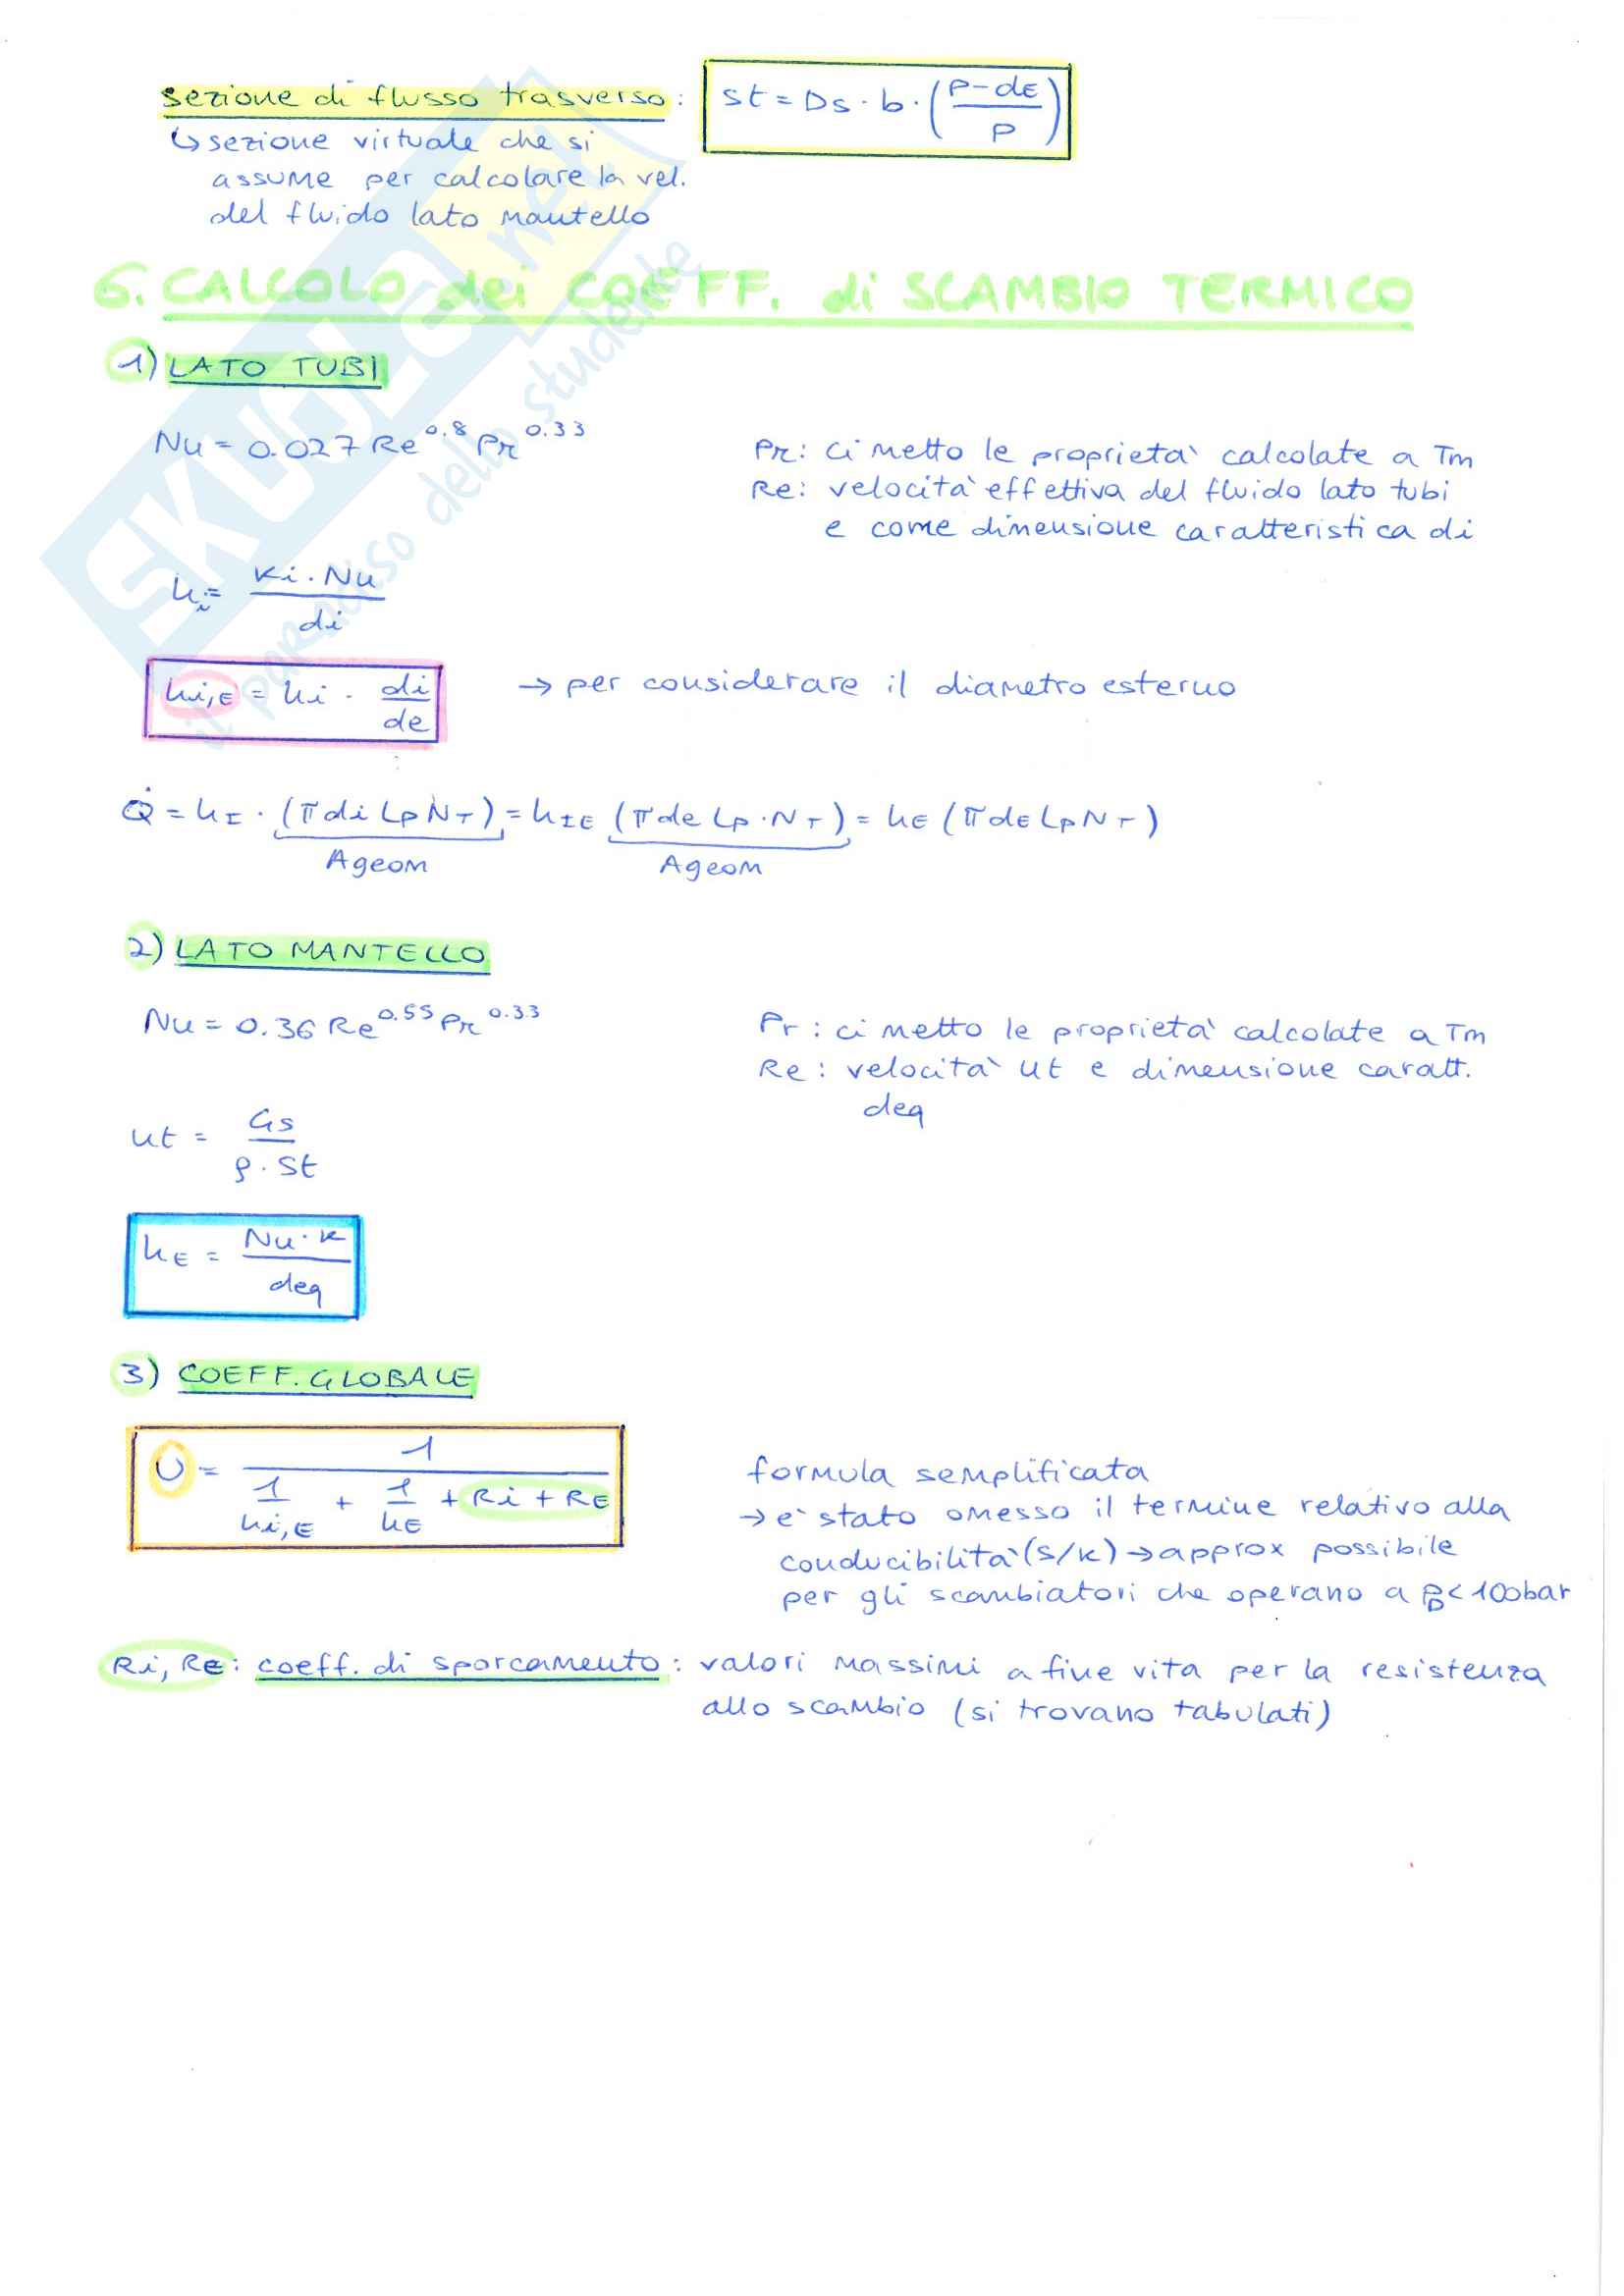 sezione di flusso trasverso: St = Ds · b · (P-dE / P)
↳ sezione virtuale che si
assume per calcolare la vel.
del fluido lato mantello
6. CALCOLO dei COEFF. di SCAMBIO TERMICO
1) LATO TUBI
Nu = 0.027 Re^0.8 Pr^0.33
Pr: ci metto le proprietà calcolate a Tm
Re: velocità effettiva del fluido lato tubi
e come dimensione caratteristica di
hi = Ki · Nu / di
hi,E = hi · di / de → per considerare il diametro esterno
Q̇ = hI · (π di LP NT) = hIE (π de LP · NT) = hE (π dE LP NT)
Ageom Ageom
2) LATO MANTELLO
Nu = 0.36 Re^0.55 Pr^0.33
Pr: ci metto le proprietà calcolate a Tm
Re: velocità ut e dimensione caratt.
deq
ut = Gs / ρ · St
hE = Nu · K / deq
3) COEFF. GLOBALE
U = 1 / (1/hi,E + 1/hE + Ri + RE)
formula semplificata
→ è stato omesso il termine relativo alla
conducibilità (s/k) → approx possibile
per gli scambiatori che operano a p < 100bar
Ri, RE: coeff. di sporcamento: valori massimi a fine vita per la resistenza
allo scambio (si trovano tabulati)
SKUOLA.net
il paradiso dello studente